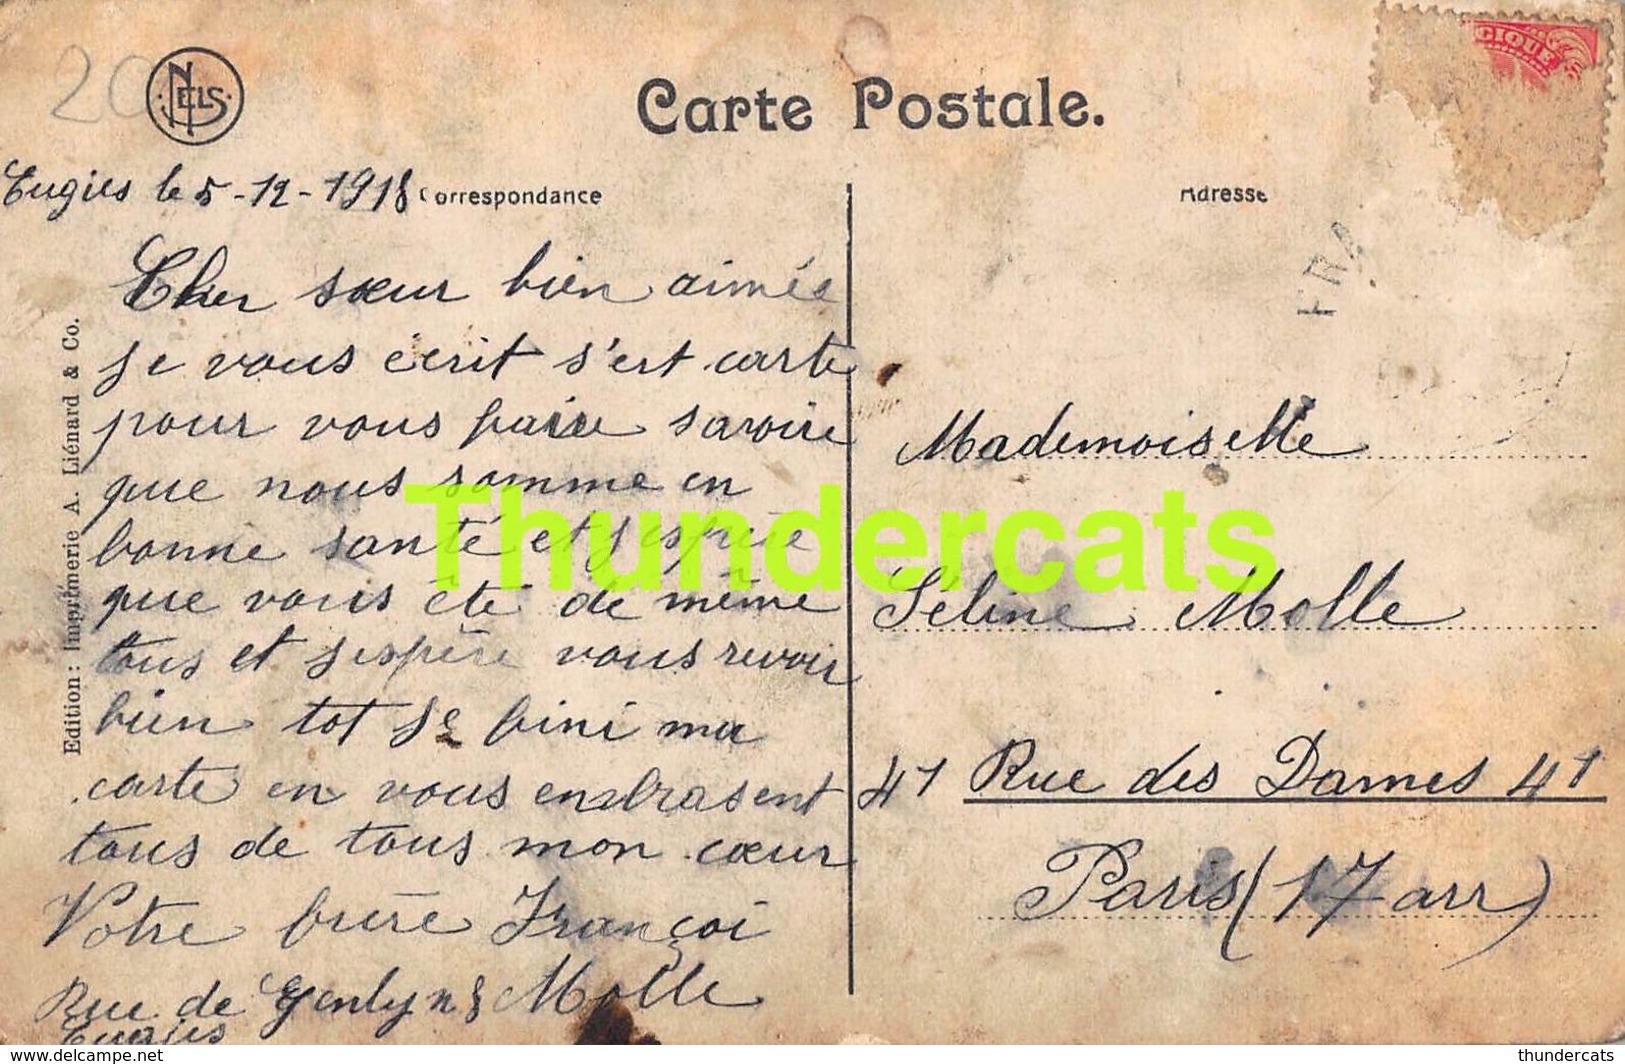 20
NELS
Carte Postale.
GIQUE
Eugies le 5-12-1918
Correspondance
Adresse
FRA
Cher sœur bien aimée
Je vous écrit s'est carte
pour vous faire savoire
que nous somme en
bonne santé et j'espère
que vous ête de même
tous et j'espère vous revoir
bien tot Je fini ma
carte en vous embrasent
tous de tous mon cœur
Votre frère Françoi
Molle
Rue de Genly n 8
Eugies
Edition : Imprimerie A. Liénard & Co.
Mademoiselle
Séline Molle
41 Rue des Dames 41
Paris (17 arr)
Thundercats
www.delcampe.net
thundercats